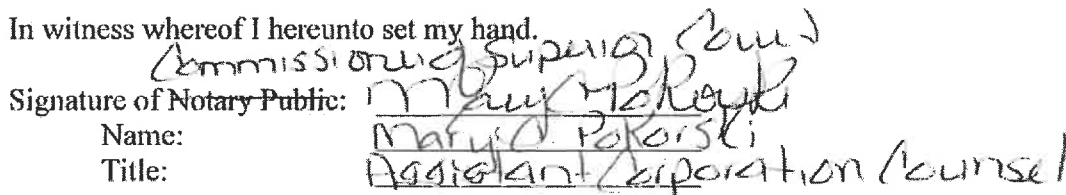 In witness whereof I hereunto set my hand.
Commissioner of Superior Court
Signature of Notary Public: Mary Pokorski
Name: Mary C Pokorski
Title: Assistant Corporation Counsel